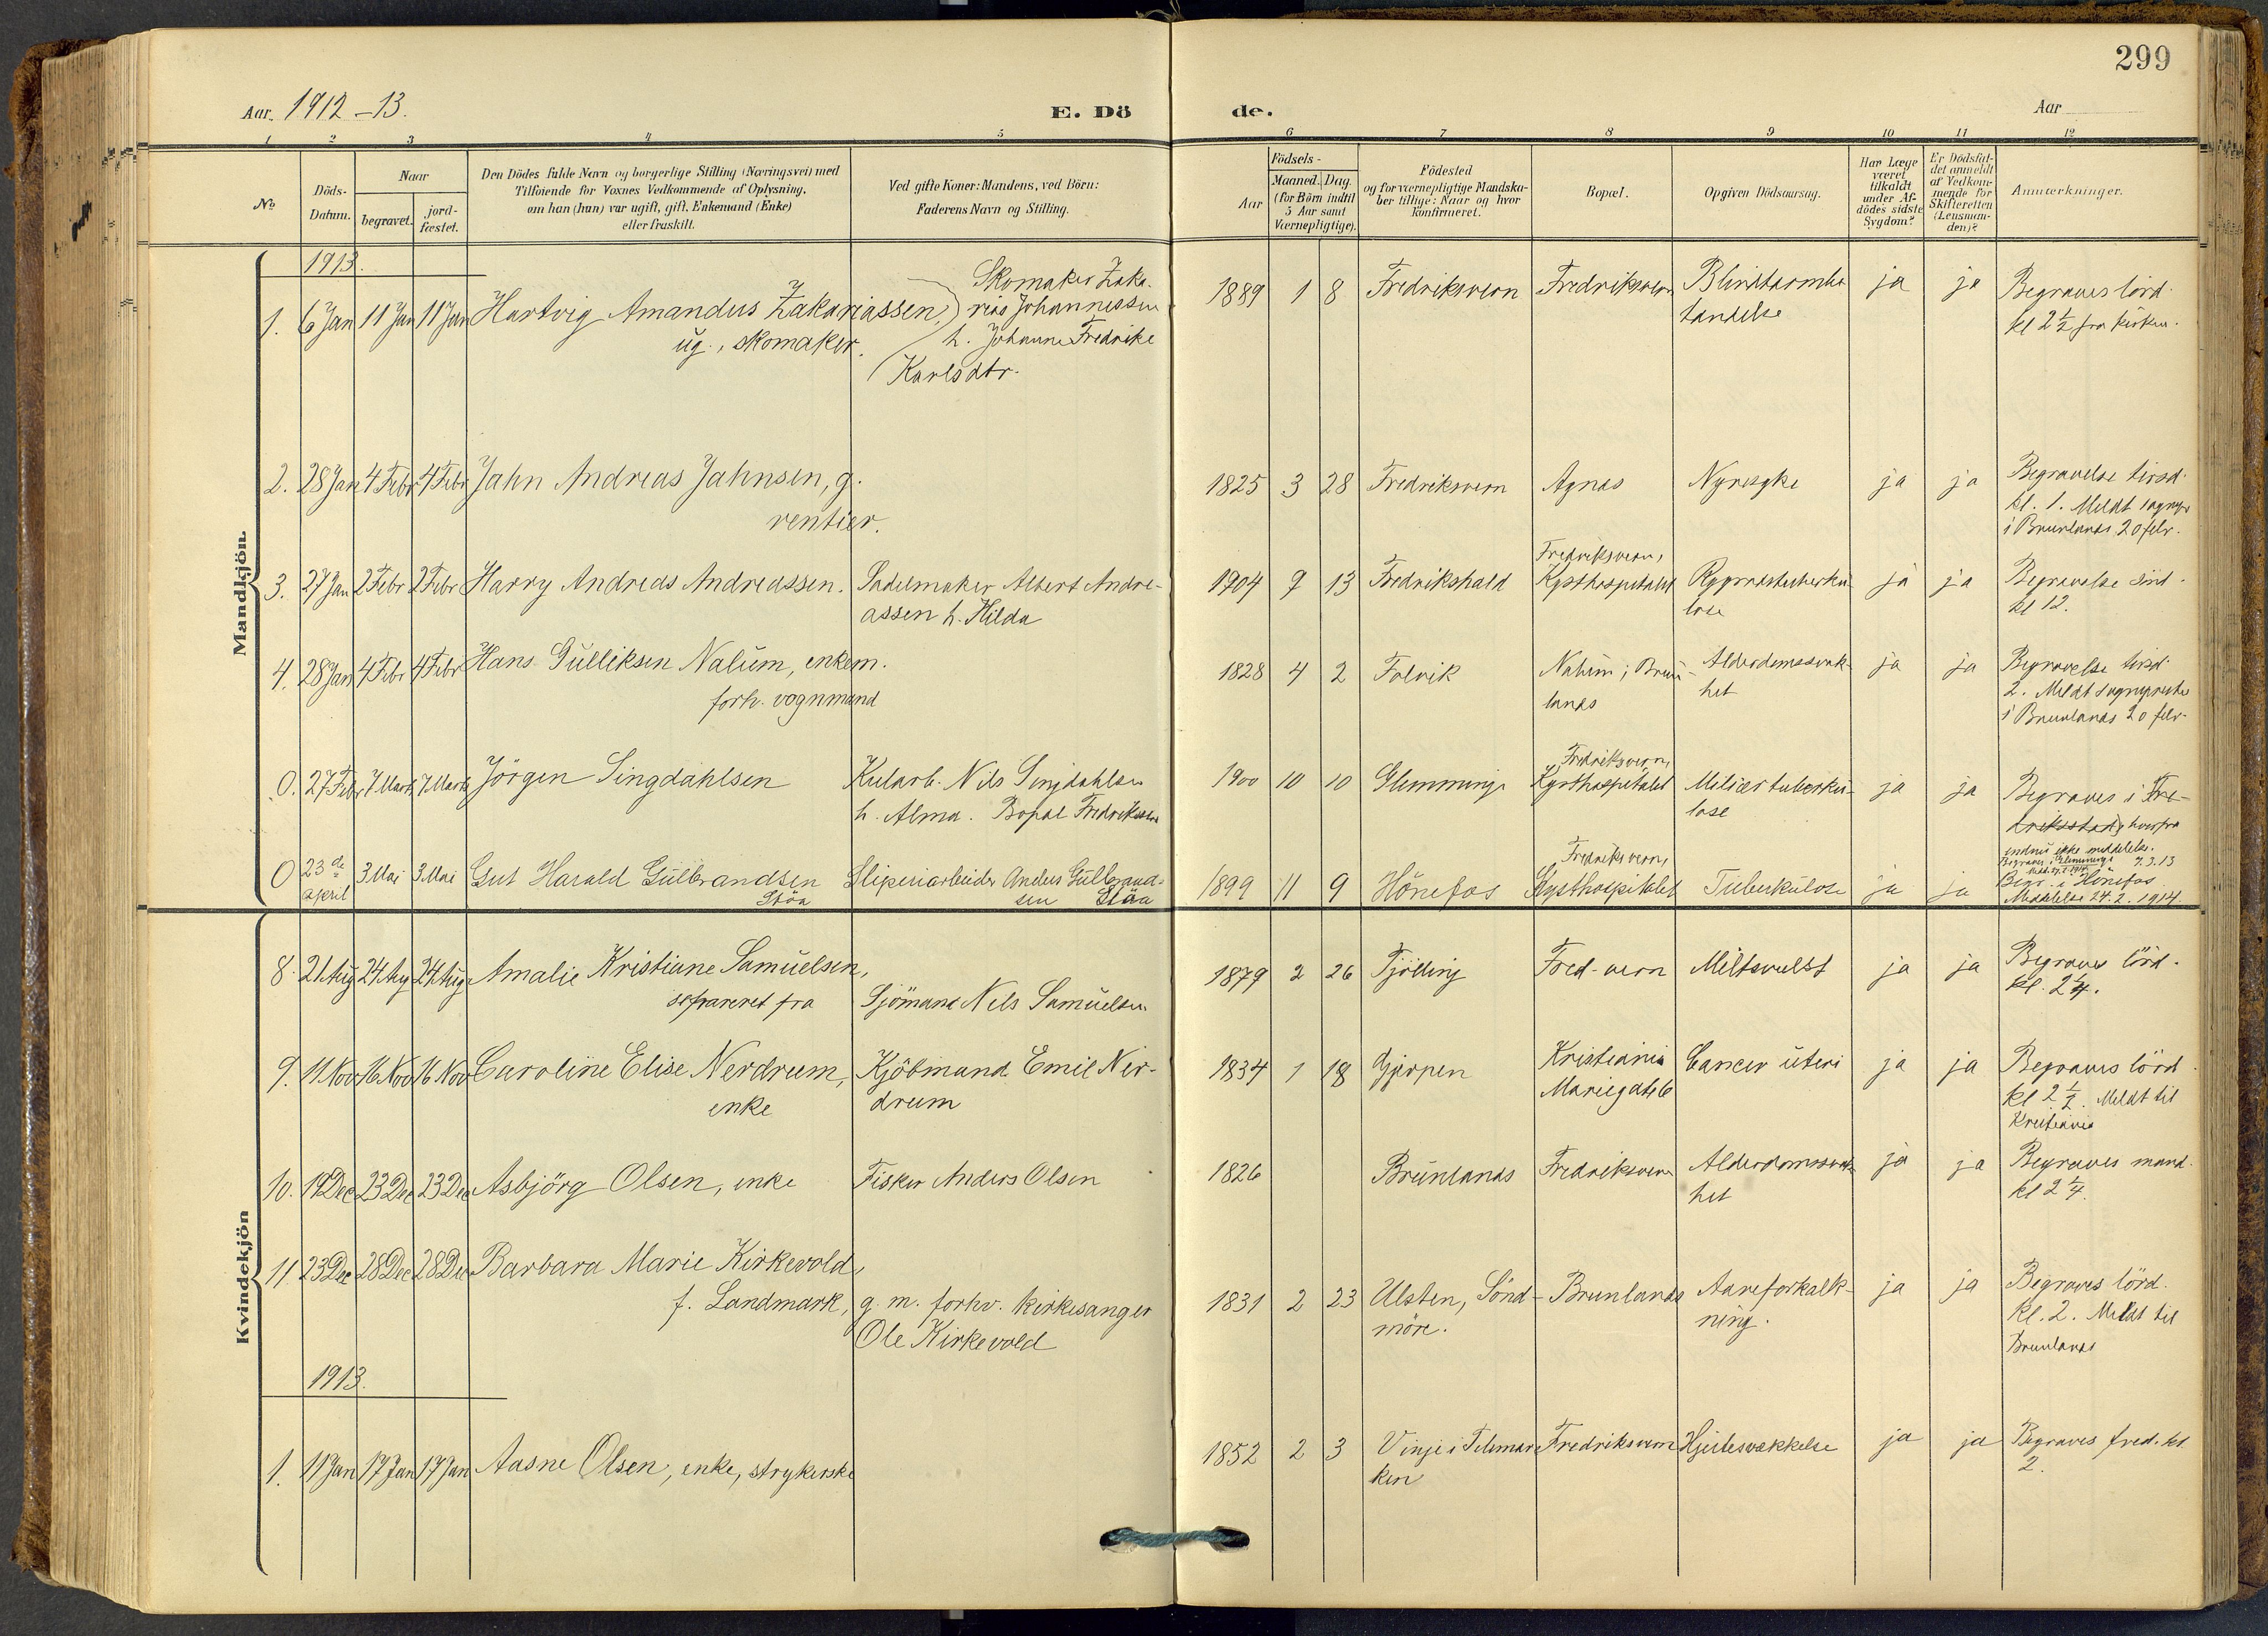 299
Aar. 1912-13.
E. Dö
de.
Aar
1 2 3 4 5 6 7 8 9 10 11 12
No
Döds-
Datum.
Naar
begravet.
jord-
fæstet.
Den Dödes fulde Navn og borgerlige Stilling (Næringsvei) med
Tilföiende for Voxnes Vedkommende af Oplysning,
om han (hun) var ugift, gift, Enkemand (Enke)
eller fraskilt.
Ved gifte Koner: Mandens, ved Börn:
Faderens Navn og Stilling.
Födsels-
Aar
Maaned. Dag.
(for Börn indtil
5 Aar samt
Værnepligtige).
Födested
og for værnepligtige Mandska-
ber tillige: Naar og hvor
konfirmeret.
Bopæl.
Opgiven Dödsaarsag.
Har Læge
været
tilkaldt
under Af-
dödes sidste
Sygdom?
Er Dödsfal-
det anmeldt
af Vedkom-
mende for
Skifteretten
(Lensman-
den)?
Anmærkninger.
Mandkjön.
1913.
1. 6 Jan 11 Jan 11 Jan Hartvig Amandus Zakariassen,
ug., skomaker.
Skomaker Zaka-
rias Johannessen
h. Johanne Fredrike
Karlsdtr.
1889 1 8 Fredriksvern Fredriksvern Blindtarmbe
tændelse ja ja Begraves lörd.
kl 2 1/2 fra kirken.
2. 28 Jan 4 Febr 4 Febr Jahn Andreas Jahnsen, g.
rentier.
1825 3 28 Fredriksvern Agnas Nyresyke ja ja Begravelse tirsd.
kl. 1. Meldt sognepr
i Brunlanas 20 febr.
3. 27 Jan 2 Febr 2 Febr Harry Andreas Andreassen. Sadelmaker Albert Andre-
assen h. Hilda
1904 9 13 Fredrikshald Fredriksvern,
Kysthospitalet Rygradstuberku
lose ja ja Begravelse sönd.
kl 12.
4. 28 Jan 4 Febr 4 Febr Hans Gulliksen Nalum, enkem.
forh. vognmand
1828 4 2 Folvik Nalum i Brun-
lanas Alderdomssvak-
het ja ja Begravelse tirsd.
2. Meldt sogneprest
i Brunlanas 20 febr.
0. 27 Febr 7 Marts 7 Marts Jörgen Singdahlsen Kularb. Nils Singdahlsen
h. Alma. Bopæl Fredriksstad
1900 10 10 Glemminge Fredriksvern,
Kysthospitalet Miliærtuberku-
lose ja ja Begraves i Fre-
driksstad, hvorfra
endnu ikke meddelelse.
Begraves i Glemminge 7.3.13
0 23de
april 3 Mai 3 Mai Gut Harald Gulbrandsen
Stöa
Sliperiarbeider Anders Gulbrand-
sen Stöa
1899 11 9 Hönefos Fredriksvern,
Kysthospitalet Tuberkulose ja ja Begr. i Hönefos
Meddelelse 24.2.1914.
Kvindekjön
8. 21 Aug 24 Aug 24 Aug Amalie Kristiane Samuelsen,
separeret fra Sjömand Nils Samuelsen
1879 2 26 Tjölling Fred-vern Miltsvulst ja ja Begraves lörd.
kl. 2 1/4.
9. 11 Nov 16 Nov 16 Nov Caroline Elise Nerdrum,
enke
Kjöbmand Emil Ner-
drum
1834 1 18 Gjerpen Kristiania
Mariegate 6 Cancer uteri ja ja Begraves lörd
kl 2 1/2. Meldt til
Kristiania
10. 19 Dec 23 Dec 23 Dec Asbjörg Olsen, enke Fisker Anders Olsen
1826 Brunlanas Fredriksvern Alderdomssvak
het ja ja Begraves mand.
kl 2 1/4.
11 23 Dec 28 Dec 28 Dec Barbara Marie Kirkevold,
f. Landmark, g. m. forhv. kirkesanger
Ole Kirkevold
1831 2 23 Ulsten, Sönd-
möre. Brunlanas Aareforkalk-
ning. ja ja Begraves lörd.
kl. 2. Meldt til
Brunlanas
1913.
1. 11 Jan 17 Jan 17 Jan Aasne Olsen, enke, strykerske
1852 2 3 Vinje i Telemar
ken Fredriksvern Hjertesvækkelse ja ja Begraves fred. kl
2.